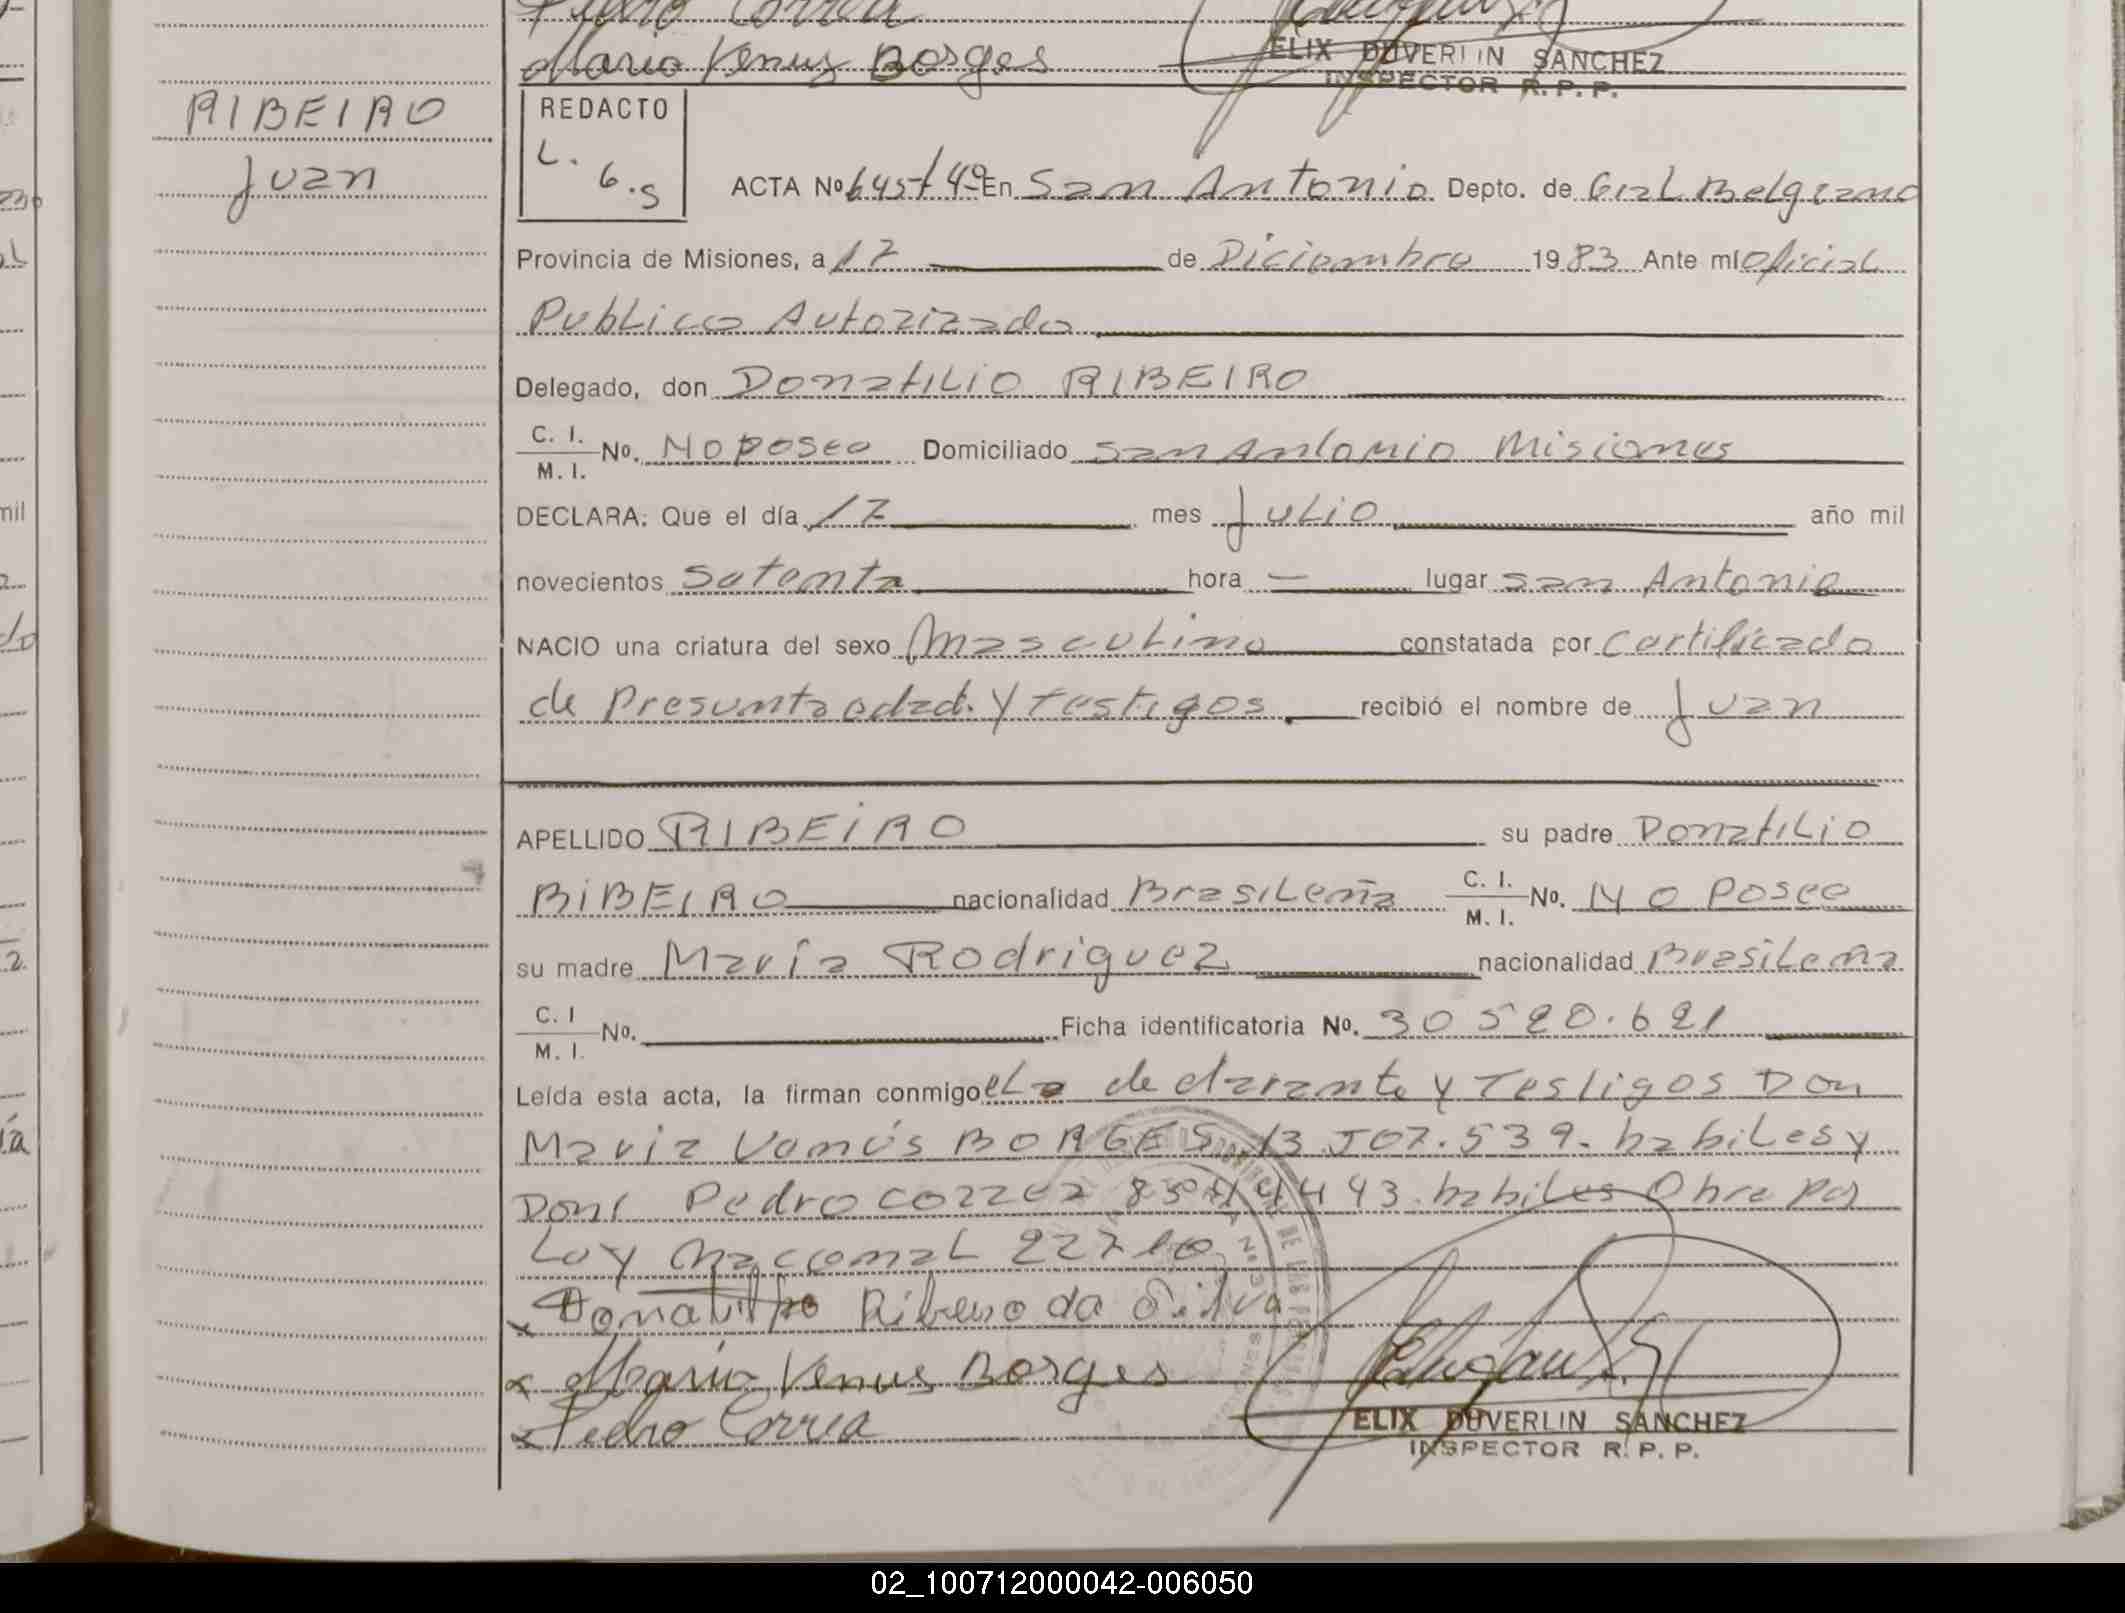 Pedro Correa
Mario Venus Borges
ELIX DUVERLIN SANCHEZ
INSPECTOR R. P. P.
RIBEIRO
Juan
REDACTO
L. G. S
ACTA Nº 645 t 4º En San Antonio Depto. de Gral Belgrano
Provincia de Misiones, a 17 de Diciembre 1983 Ante mí Oficial
Publico Autorizado
Delegado, don Donatilio RIBEIRO
C. I. / M. I. No. No posee Domiciliado San Antonio Misiones
DECLARA: Que el día 17 mes Julio año mil
novecientos Setenta hora — lugar San Antonio
NACIO una criatura del sexo Masculino constatada por Certificado
de Presunta edad. y testigos recibió el nombre de Juan
APELLIDO RIBEIRO su padre Donatilio
RIBEIRO nacionalidad Brasileña C. I. / M. I. No. No Posee
su madre María Rodriguez nacionalidad Brasileña
C. I / M. I. No. Ficha identificatoria No. 30 520.621
Leída esta acta, la firman conmigo el declarante y Testigos Don
Mario Venús BORGES 13 507.539. habiles y
Don Pedro Correa habiles Obra por
Ley Nacional
Donatilio Ribeiro da Silva
Mario Venus Borges
Pedro Correa
ELIX DUVERLIN SANCHEZ
INSPECTOR R. P. P.
02_100712000042-006050